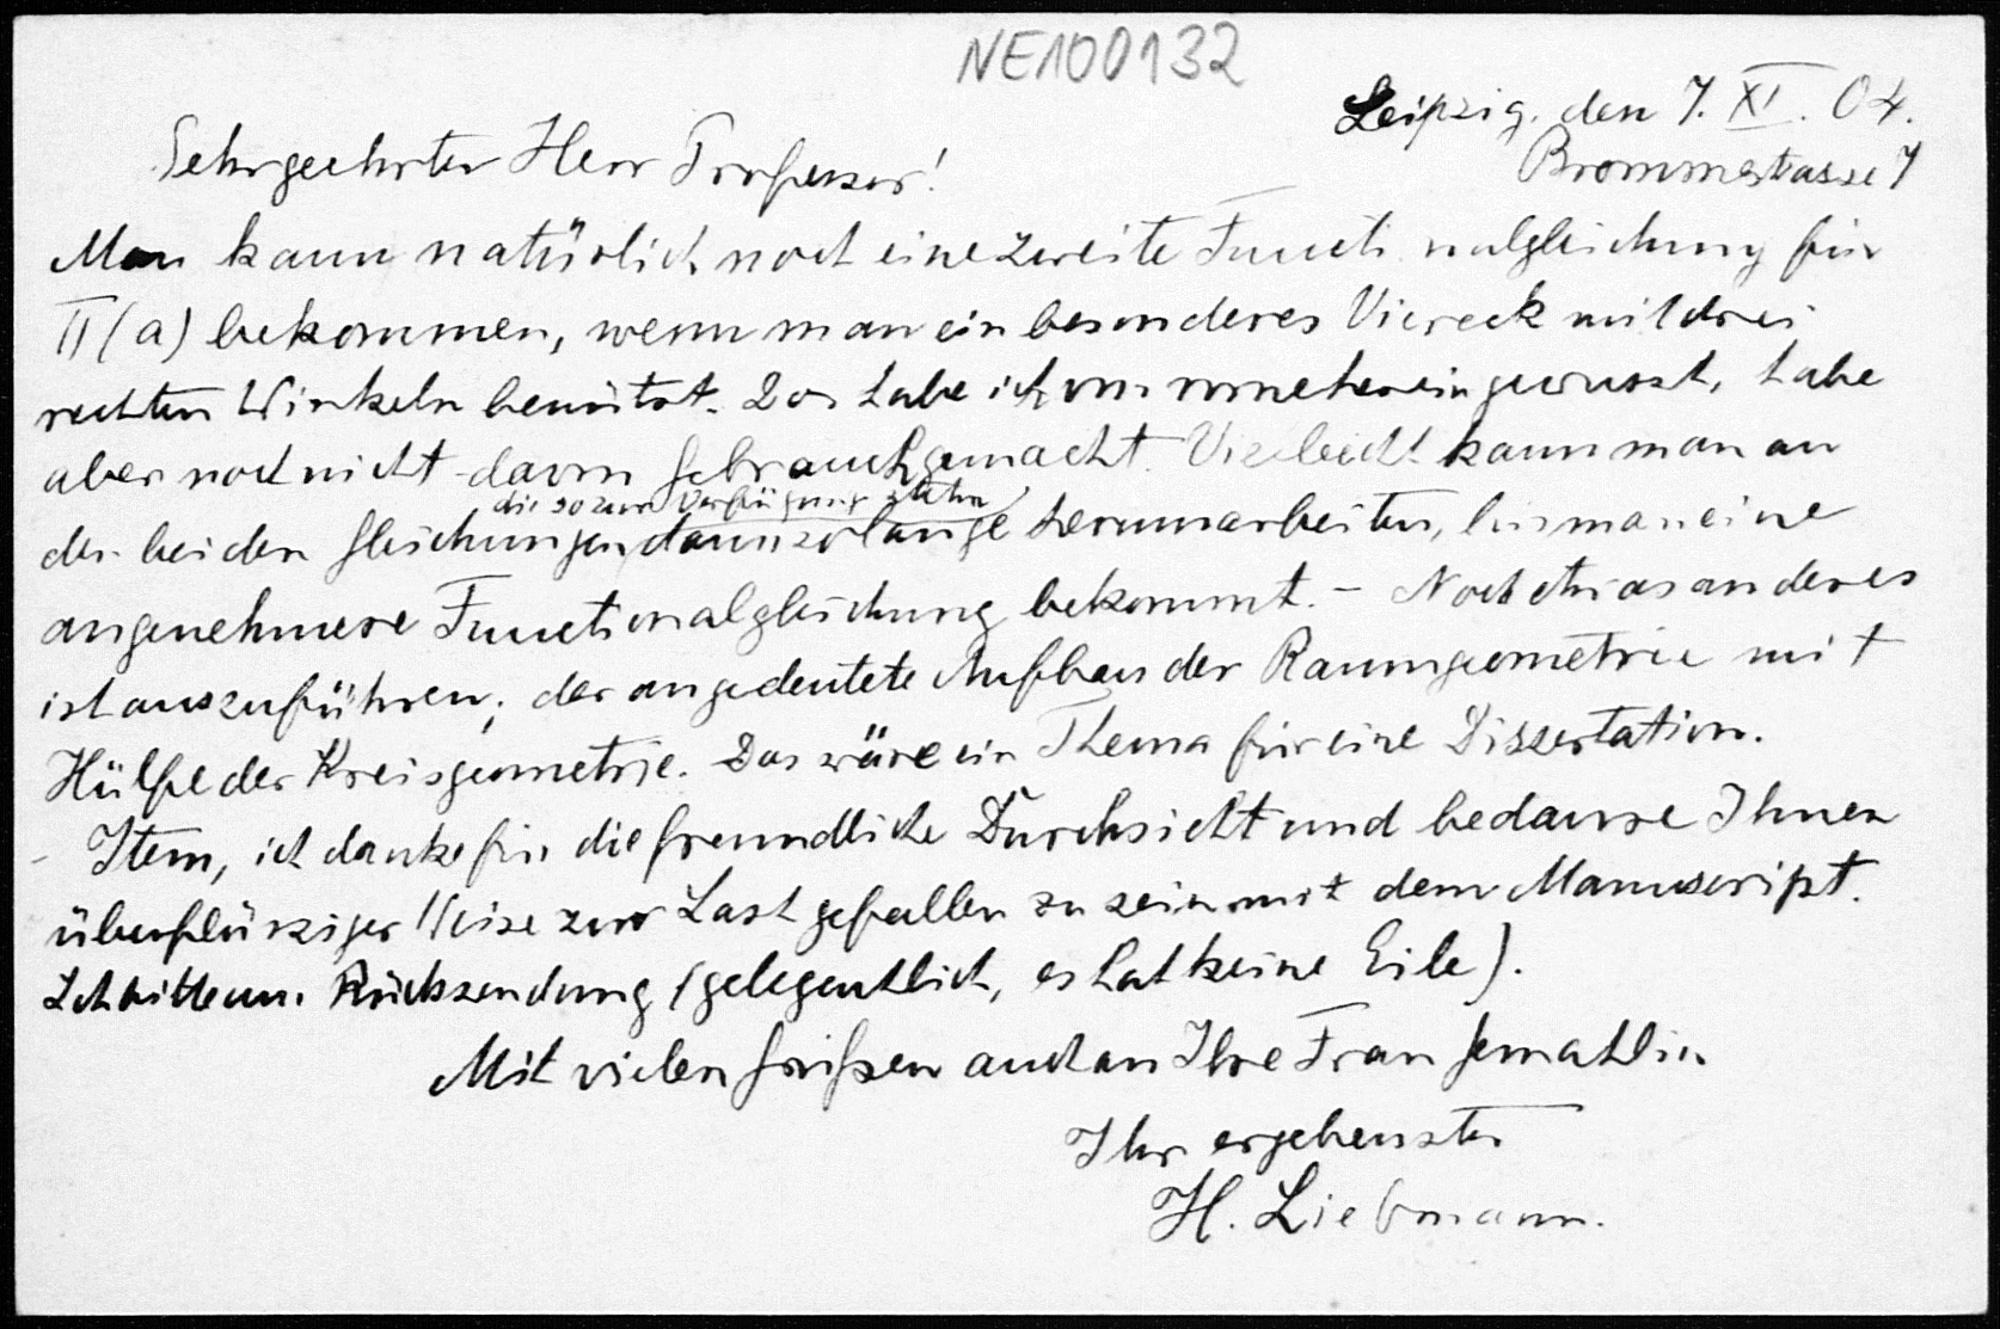 NE100132
Leipzig, den 7. XI. 04.
Brommestrasse 7
Sehrgeehrter Herr Professor!
Man kann natürlich noch eine zweite Functionalgleichung für
Π(a) bekommen, wenn man ein besonderes Viereck mit drei
rechten Winkeln benützt. Das habe ich von vorneherein gewusst, habe
aber noch nicht davon Gebrauch gemacht. Vielleicht kann man an
die so zur Verfügung stehn
den beiden Gleichungen dann so lange herumarbeiten, bis man eine
angenehmere Functionalgleichung bekommt. - Noch etwas anderes
ist auszuführen; der angedeutete Aufbau der Raumgeometrie mit
Hülfe der Kreisgeometrie. Das wäre ein Thema für eine Dissertation.
- Item, ich danke für die freundliche Durchsicht und bedaure Ihnen
überflüssiger Weise zur Last gefallen zu sein mit dem Manuscript.
Ich bitte um Rücksendung (gelegentlich, es hat keine Eile).
Mit vielen Grüßen auch an Ihre Frau Gemahlin
Ihr ergebenster
H. Liebmann.